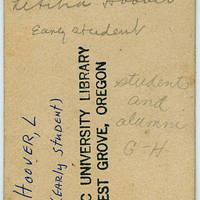 Letitia Hoover
Early student
student
and
alumni
G-H
HOOVER, L
(EARLY STUDENT)
C UNIVERSITY LIBRARY
EST GROVE, OREGON